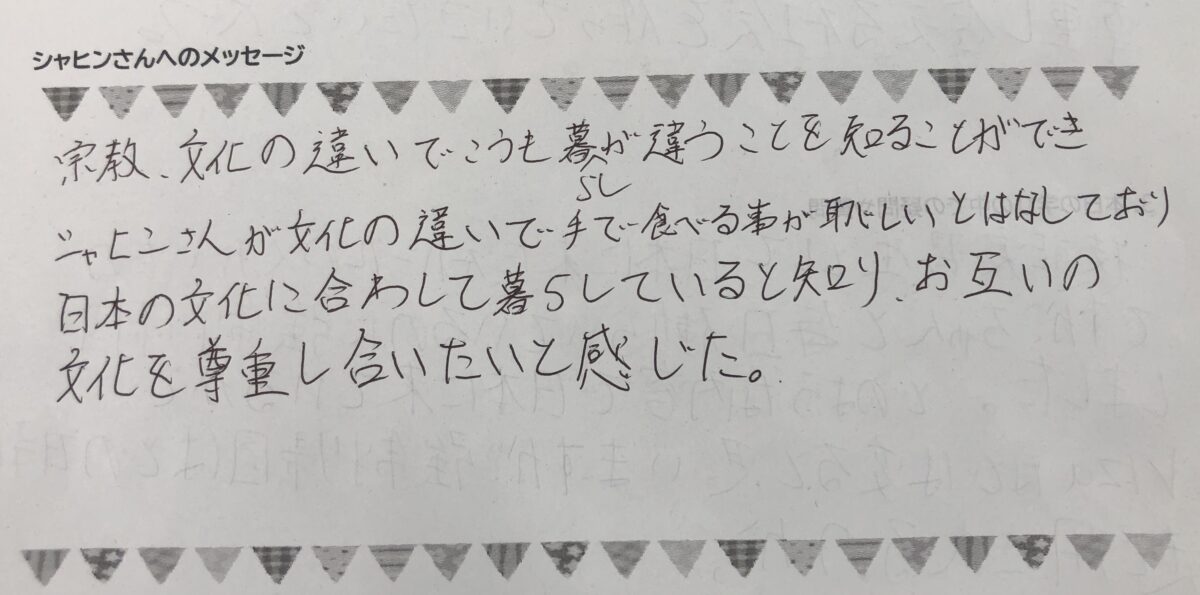 シャヒンさんへのメッセージ
宗教、文化の違いでこうも暮らしが違うことを知ることができ
シャヒンさんが文化の違いで手で食べる事が恥じしいとはなしており
日本の文化に合わして暮らしていると知り、お互いの
文化を尊重し合いたいと感じた。